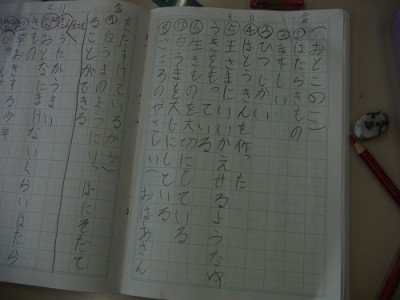 (おとこのこ)
①はたらきもの
②まずしい
③ひつじかい
④ばとうきんを作った
⑤王さまにいいかえせるようなゆ
うきをもっている
⑥生きものを大切にしている
⑦白うまを大じにしている
⑧こころのやさしい(おばあさん
をたすけているから)
⑨白うまの
ることができる
⑩うたがうまい
⑪おとなにまけないくらいはたら
きもの